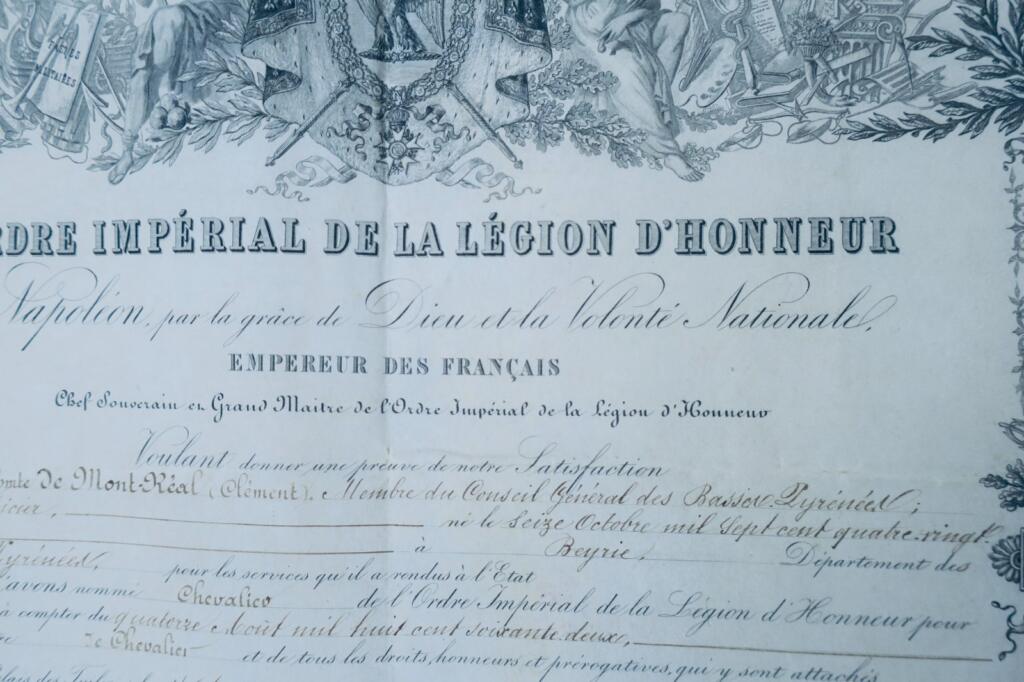 FASTES
MILITAIRES
RDRE IMPÉRIAL DE LA LÉGION D'HONNEUR
Napoléon, par la grâce de Dieu et la Volonté Nationale,
EMPEREUR DES FRANÇAIS
Chef Souverain et Grand Maitre de l'Ordre Impérial de la Légion d'Honneur
Voulant donner une preuve de notre Satisfaction
omte De Mont-Réal (Clément), Membre du Conseil Général des Basses Pyrénées;
icier, né le Seize Octobre mil Sept cent quatre-vingt
à Beyrie, Département des
Pyrénées, pour les services qu'il a rendus à l'Etat
avons nommé Chevalier de l'Ordre Impérial de la Légion d'Honneur pour
à compter du quatorze Août mil huit cent soixante deux,
de Chevalier et de tous les droits, honneurs et prérogatives, qui y sont attachés